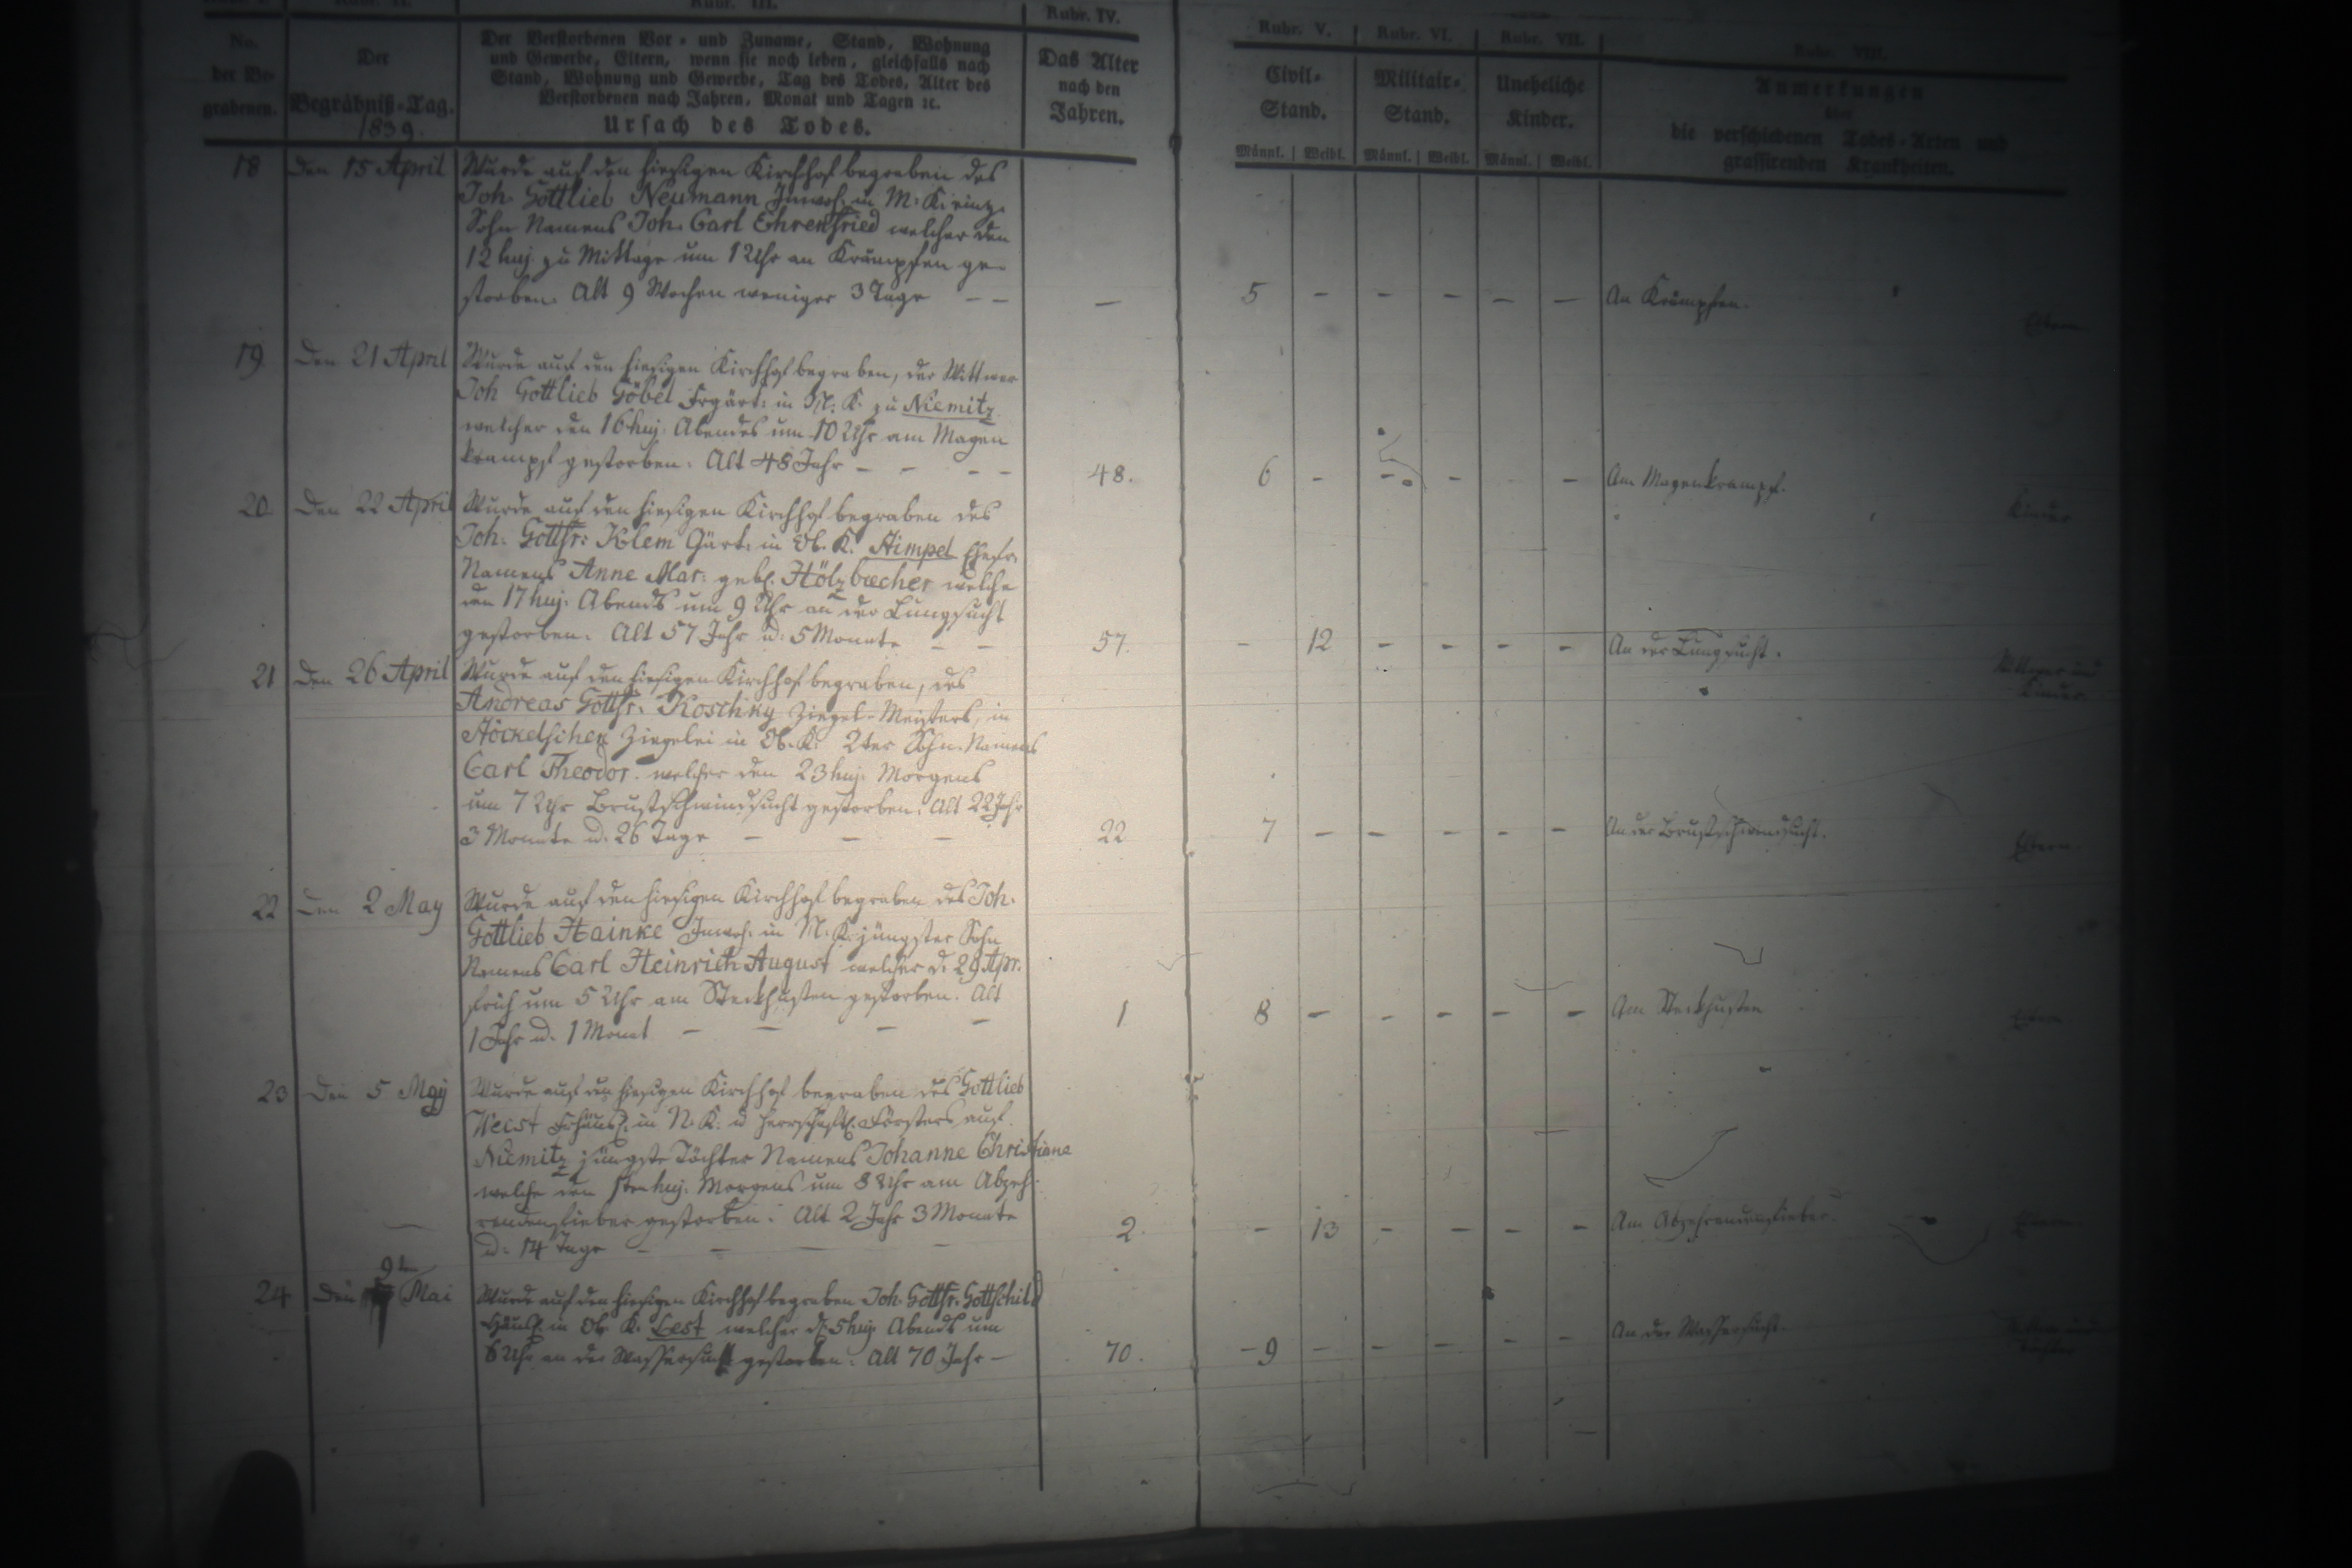 Rubr. III.
Rubr. IV.
Rubr. V.
Rubr. VI.
Rubr. VII.
Rubr. VIII.
No.
der Be-
grabenen.
Der
Begräbniß-Tag.
1839.
Der Verstorbenen Vor- und Zuname, Stand, Wohnung
und Gewerbe, Eltern, wenn sie noch leben, gleichfalls nach
Stand, Wohnung und Gewerbe, Tag des Todes, Alter des
Verstorbenen nach Jahren, Monat und Tagen ꝛc.
Ursach des Todes.
Das Alter
nach den
Jahren.
Civil-
Stand.
Männl. | Weibl.
Militair-
Stand.
Männl. | Weibl.
Uneheliche
Kinder.
Männl. | Weibl.
Anmerkungen
über
die verschiedenen Todes-Arten und
grassirenden Krankheiten.
18 Den 15 April Wurde auf den hiesigen Kirchhof begraben des
Joh. Gottlieb Neumann Inwoh. in M. K. einz.
Sohn Namens Joh. Carl Ehrenfried welcher den
12 huj. zu Mittage um 12 Uhr an Krämpfen ge-
storben. Alt 9 Wochen weniger 3 Tage – – — 5 – – – – – An Krämpfen. Eltern
19 Den 21 April Wurde auf den hiesigen Kirchhof begraben, der Wittwer
Joh Gottlieb Göbel Frgärt: in M. K. zu Niemitz
welcher den 16 huj: Abendes um 10 Uhr am Magen
krampf gestorben. Alt 48 Jahr – – – – 48. 6 – – – – Am Magenkrampf. Kinder
20 Den 22 April Wurde auf den hiesigen Kirchhof begraben des
Joh. Gottfr: Klem Gärt. in Ob. K. Ehefr.
Namens Anne Mar: geb. Hölzbecher welche
den 17 huj. Abends um 9 Uhr an der Lungsucht
gestorben. Alt 57 Jahr u: 5 Monate – – 57. – 12 – – – – An der Lungsucht. Wittwer und
Kinder.
21 Den 26 April Wurde auf den hiesigen Kirchhof begraben, des
Andreas Gottfr. Koschky Ziegel-Meisters, in
Ziegelei in Ob. K. 2ter Sohn Namens
Carl Theodor. welcher den 23 huj. Morgens
um 7 Uhr Brustschwindsucht gestorben. Alt 22 Jahr
3 Monate u. 26 Tage – – – 22 7 – – – – – An der Brustschwindsucht. Eltern
22 Den 2 May Wurde auf den hiesigen Kirchhof begraben des Joh.
Gottlieb Hainke Inwoh. in M. K. jüngster Sohn
Namens Carl Heinrich August welcher d. 29 Apr.
früh um 5 Uhr am Steckhusten gestorben. Alt
1 Jahr u. 1 Monat – – – – 1 8 – – – – – Am Steckhusten Eltern
23 Den 5 May Wurde auf den hiesigen Kirchhof begraben des Gottlieb
Frhäusl. in N. K. u herrschaftl. Försters auf
Niemitz jüngste Tochter Namens Johanne Christiane
welche den huj. Morgens um 8 Uhr am Abzeh-
rendenfieber gestorben. Alt 2 Jahr 3 Monate
u. 14 Tage – – – – 2. – 13 – – – – Am Abzehrendenfieber. Eltern
24 Den 9t Mai Wurde auf den hiesigen Kirchhof begraben Joh. Gottfr. Gottschild
Häusl. in Ob. K. Lest welcher d. 5 huj. Abends um
6 Uhr an der Wassersucht gestorben. Alt 70 Jahr – 70. – 9 – – – – – An der Wassersucht.